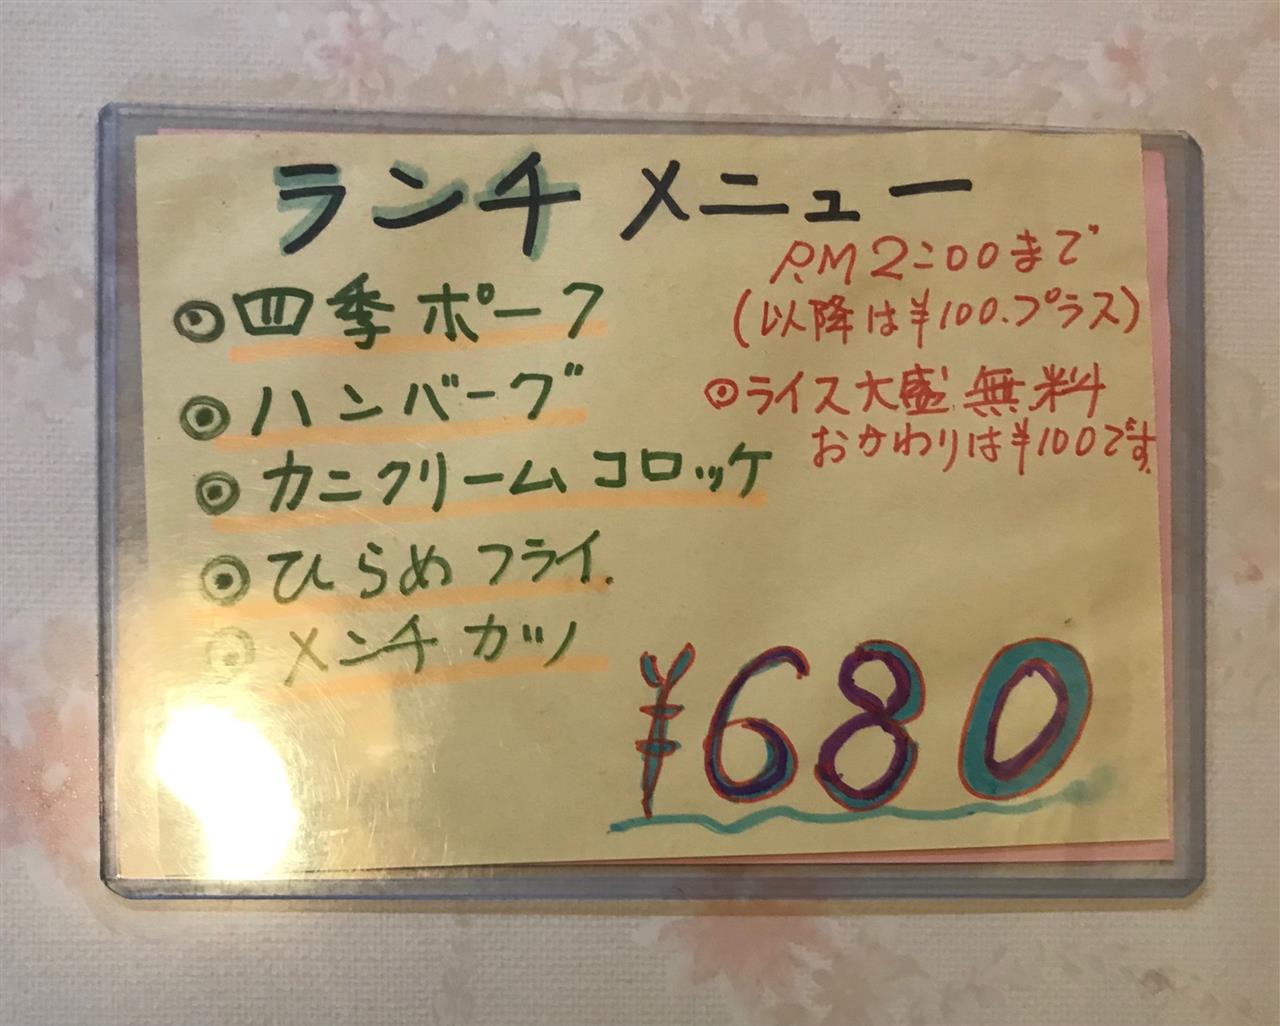 ランチメニュー
P.M 2:00まで
(以降は¥100.プラス)
◎四季ポーク
◎ハンバーグ
◎カニクリームコロッケ
◎ひらめフライ.
◎メンチカツ
◎ライス大盛無料
おかわりは¥100です.
¥680